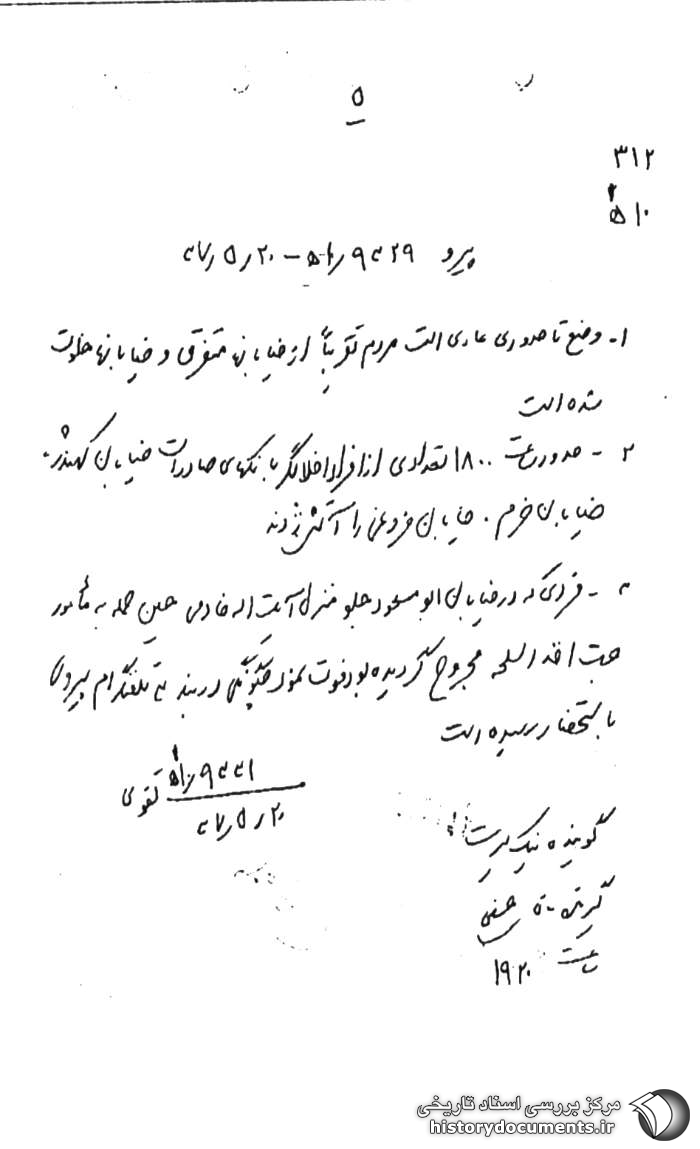 ۵
۳۱۲
۱۰ ه‍
پیرو ۹۳۲۹ر۱۰ه‍ - ۲۰ر۵ر۳۷
۱- وضع تا حدودی عادی است مردم تقریباً از خیابانها متفرق و خیابانها خلوت
شده است
۲- حدود ساعت ۱۸۰۰ تعدادی از افراد اخلالگر بانکهای صادرات خیابان کهندژ،
خیابان خرم، خیابان فروغی را آتش زدند
۳- فردی که در خیابان ابومسعود جلو منزل آیت اله خادمی حین حمله به مأمور
جهت اخذ اسلحه مجروح گردیده بود فوت نمود چگونگی در بند تلفنگرام پیروی
باستحضار رسیده است
۹۳۳۱ر۱۰ه‍ تقوی
۲۰ر۵ر۳۷
گوینده نیک
گیرنده
ساعت ۱۹۲۰
مرکز بررسی اسناد تاریخی
historydocuments.ir